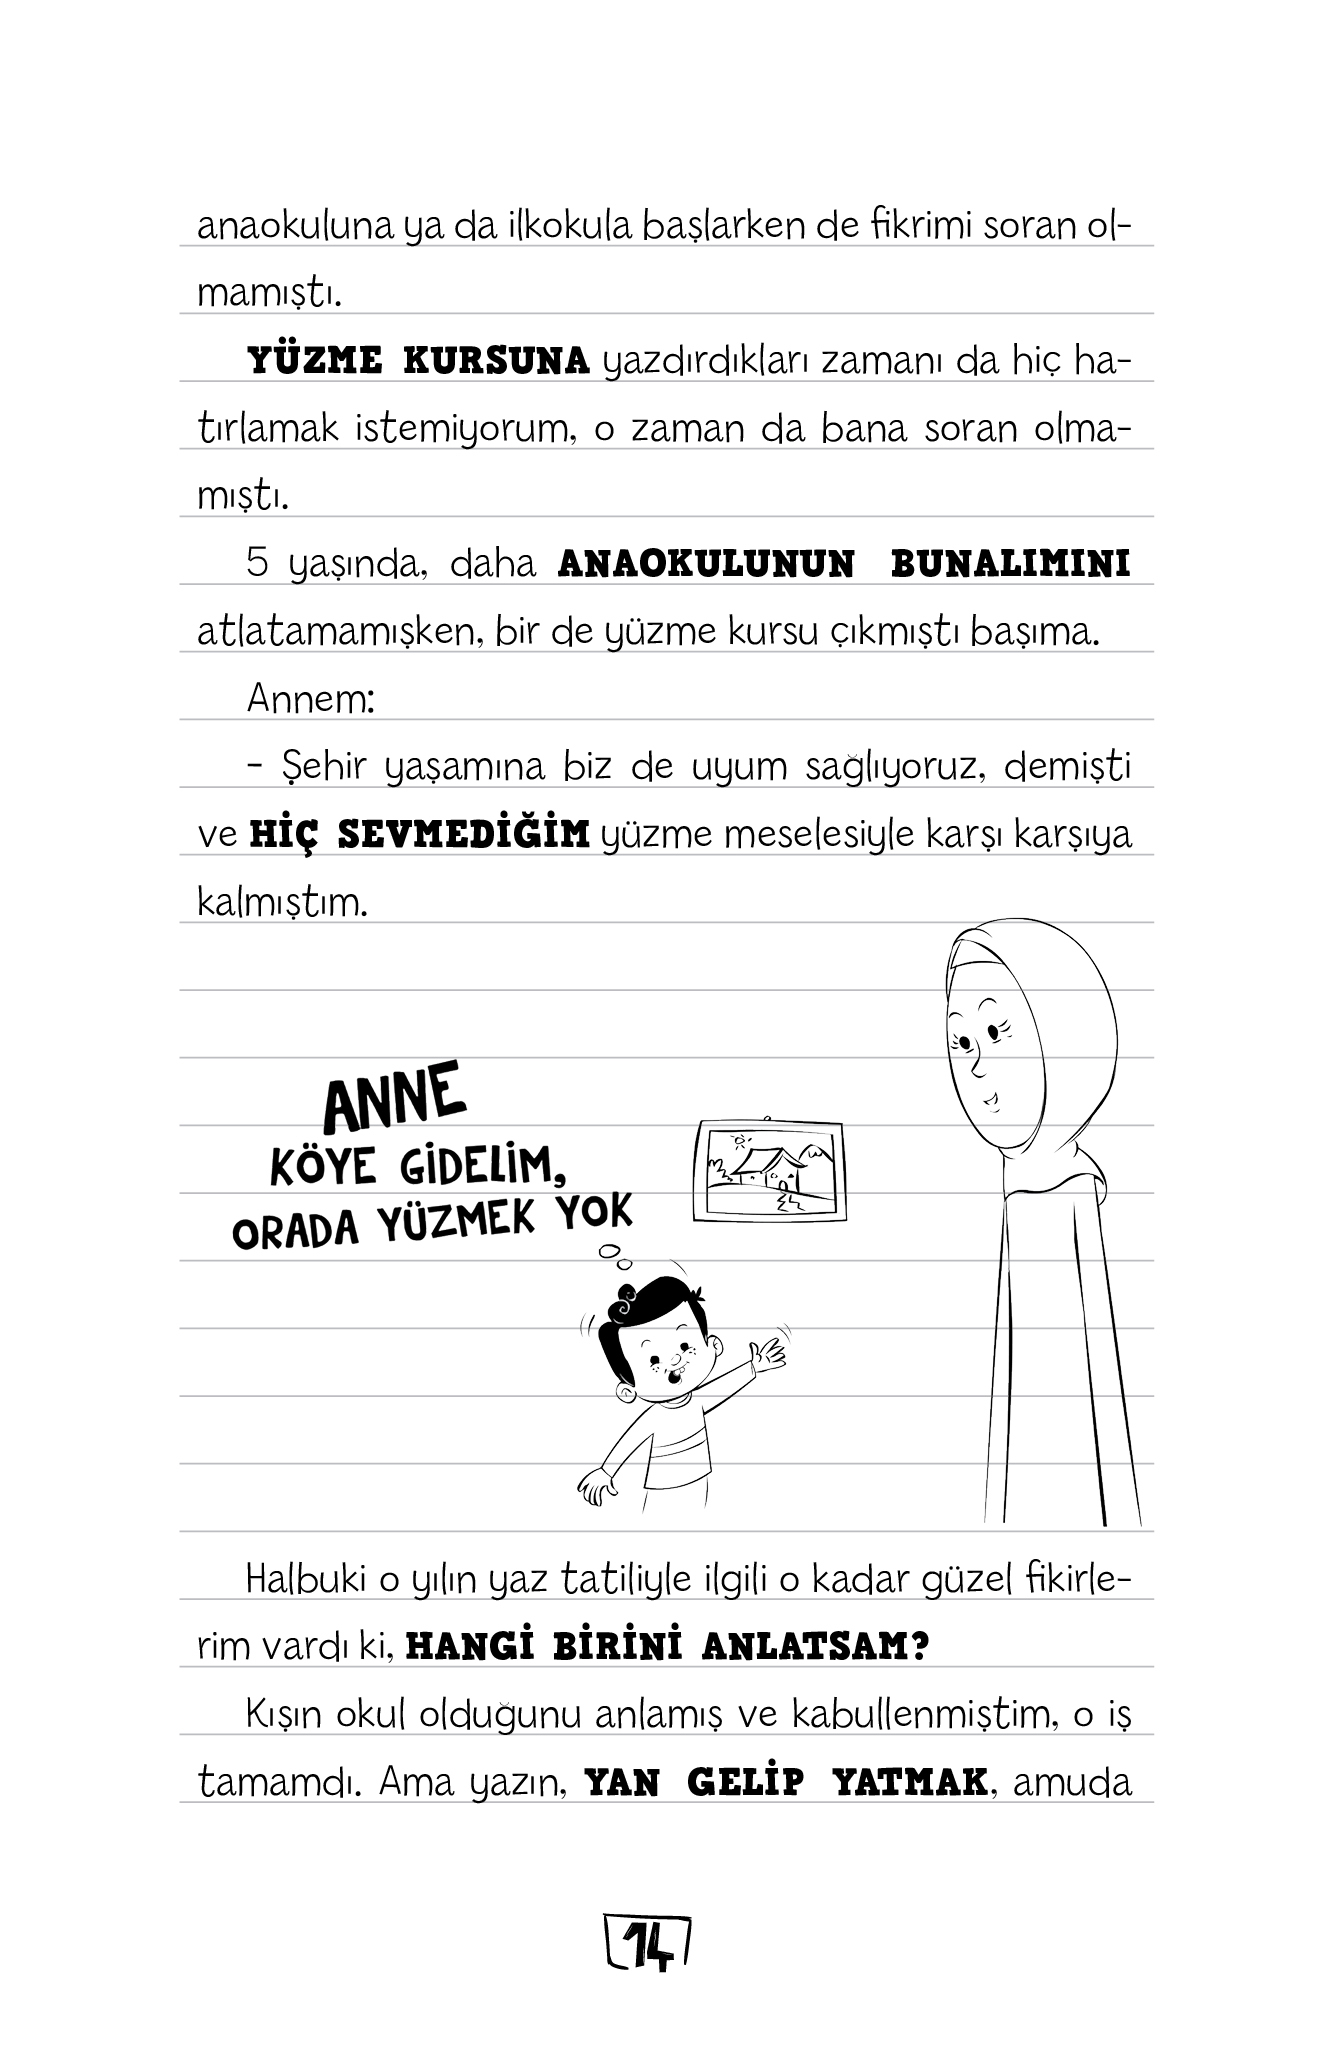 anaokuluna ya da ilkokula başlarken de fikrimi soran ol-
mamıştı.
YÜZME KURSUNA yazdırdıkları zamanı da hiç ha-
tırlamak istemiyorum, o zaman da bana soran olma-
mıştı.
5 yaşında, daha ANAOKULUNUN BUNALIMINI
atlatamamışken, bir de yüzme kursu çıkmıştı başıma.
Annem:
- Şehir yaşamına biz de uyum sağlıyoruz, demişti
ve HİÇ SEVMEDİĞİM yüzme meselesiyle karşı karşıya
kalmıştım.
ANNE
KÖYE GİDELİM,
ORADA YÜZMEK YOK
Halbuki o yılın yaz tatiliyle ilgili o kadar güzel fikirle-
rim vardı ki, HANGİ BİRİNİ ANLATSAM?
Kışın okul olduğunu anlamış ve kabullenmiştim, o iş
tamamdı. Ama yazın, YAN GELİP YATMAK, amuda
14